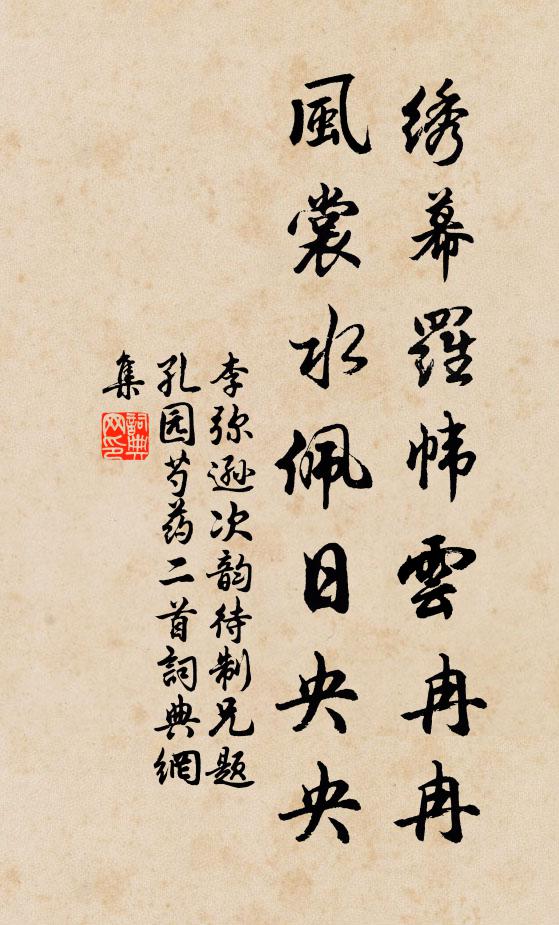 绣幕羅帏雲冉冉
風裳水佩日央央
李弥逊次韵待制兄题
孔园芍药二首詞典網
集
詞典网印